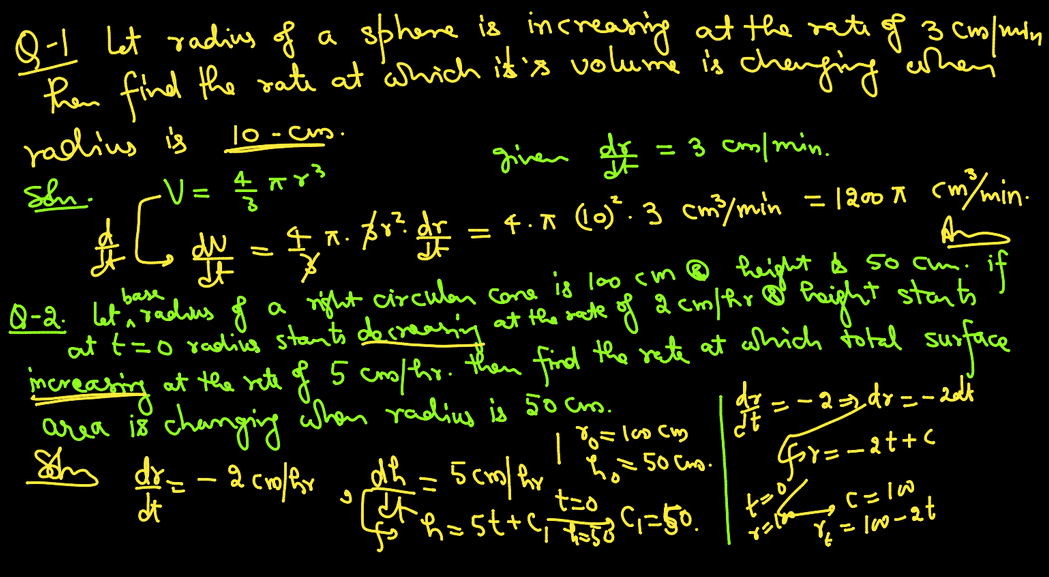 Q-1 Let radius of a sphere is increasing at the rate of 3 cm/min
then find the rate at which it's volume is changing when
radius is 10-cm.
given dr/dt = 3 cm/min.
Soln. V = 4/3 π r³
d/dt → dV/dt = 4/3 π. 3r². dr/dt = 4.π (10)². 3 cm³/min = 1200 π cm³/min.
Ans
Q-2. Let base radius of a right circular cone is 100 cm & height is 50 cm. if
at t=0 radius starts decreasing at the rate of 2 cm/hr & height starts
increasing at the rate of 5 cm/hr. then find the rate at which total surface
area is changing when radius is 50 cm.
Soln dr/dt = - 2 cm/hr , dh/dt = 5 cm/hr
r₀ = 100 cm
h₀ = 50 cm.
∫→ h = 5t + C₁ t=0 h=50 → C₁ = 50.
dr/dt = -2 ⇒ dr = -2dt
∫→ r = -2t + C
t=0
r=100 → C = 100
r_t = 100-2t